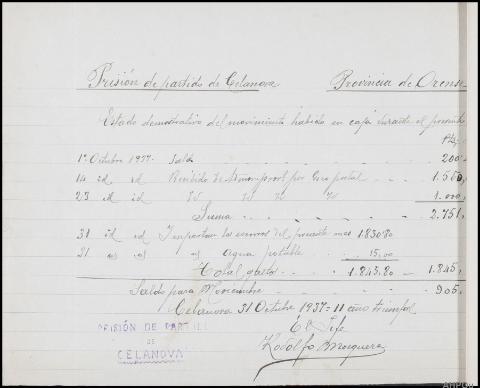 Prisión de partido de Celanova. Provincia de Orense
Estado demostrativo del movimiento habido en caja durante el presente
Ptas
1º Octubre 1937. Saldo 200
14 id id Recibido de por Giro postal 1.550,
23 id id id id id id 1.000,
Suma 2.751,
31 id id Importan los del presente mes 1.830'80
31 id id id Agua potable 15,00
Total gasto 1.845,80 1.845,
Saldo para Noviembre 905,
Celanova 31 Octubre 1937 = II año triunfal
El Jefe
Rodolfo Mosquera
PRISIÓN DE PARTIDO
DE
CELANOVA
AHPOU